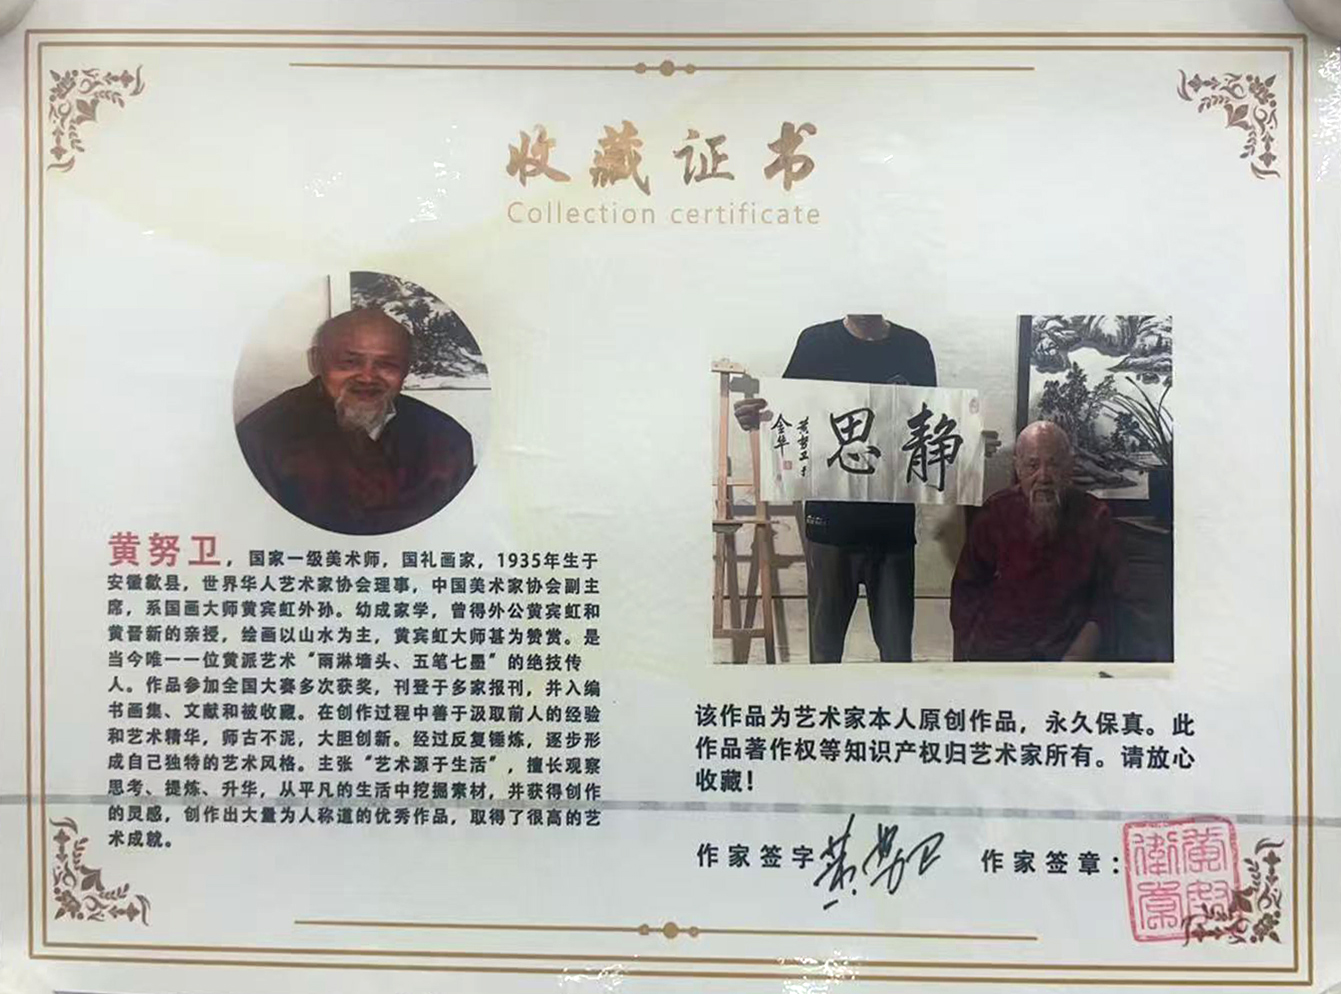 收藏证书
Collection certificate
黄努卫，国家一级美术师，国礼画家，1935年生于
安徽歙县，世界华人艺术家协会理事，中国美术家协会副主
席，系国画大师黄宾虹外孙。幼成家学，曾得外公黄宾虹和
黄晋新的亲授，绘画以山水为主，黄宾虹大师甚为赞赏。是
当今唯一一位黄派艺术“雨淋墙头、五笔七墨”的绝技传
人。作品参加全国大赛多次获奖，刊登于多家报刊，并入编
书画集、文献和被收藏。在创作过程中善于汲取前人的经验
和艺术精华，师古不泥，大胆创新。经过反复锤炼，逐步形
成自己独特的艺术风格。主张“艺术源于生活”，擅长观察
思考、提炼、升华，从平凡的生活中挖掘素材，并获得创作
的灵感，创作出大量为人称道的优秀作品，取得了很高的艺
术成就。
静思
黄努卫于
金华
该作品为艺术家本人原创作品，永久保真。此
作品著作权等知识产权归艺术家所有。请放心
收藏！
作家签字 黄努卫 作家签章：
黄努
衛章